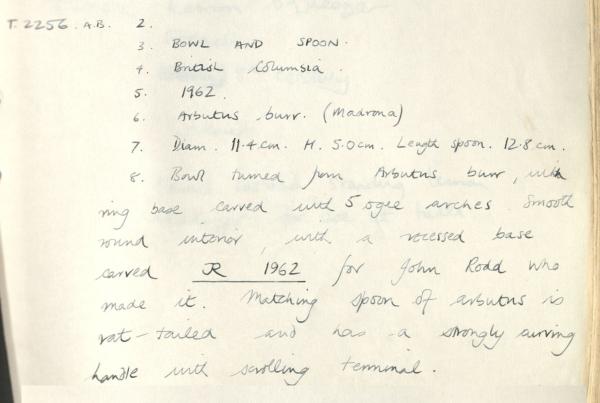 T. 2256. A.B. 2.
3. BOWL AND SPOON.
4. British Columbia.
5. 1962.
6. Arbutus burr. (Madrona)
7. Diam. 11.4 cm. H. 5.0 cm. Length spoon. 12.8 cm.
8. Bowl turned from Arbutus burr, with
ring base carved with 5 ogee arches smooth
round interior, with a recessed base
carved JR 1962 for John Rodd who
made it. Matching spoon of arbutus is
rat-tailed and has a strongly curving
handle with scrolling terminal.